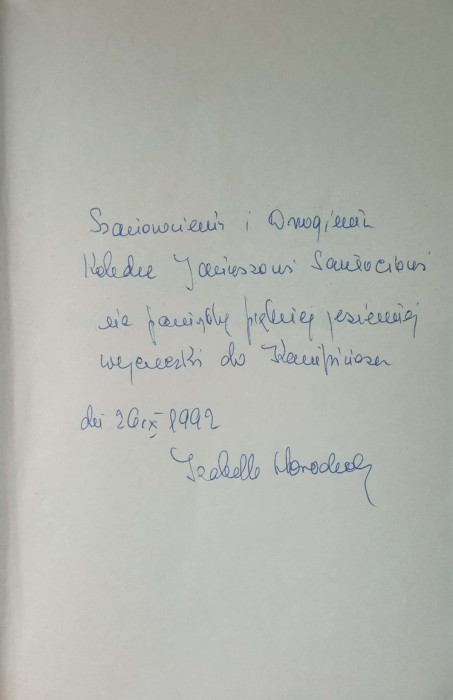 Szanownemu i Drogiemu
Koledze Januszowi
na pamiątkę pięknej jesiennej
wycieczki do Kampinosu
dn 26 IX 1992
Izabella